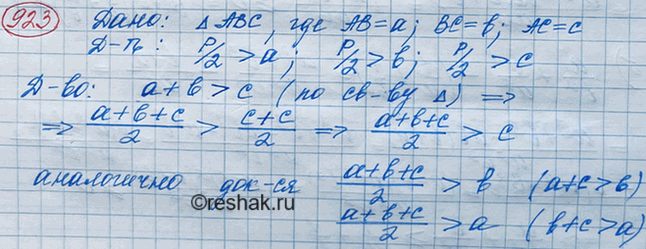 923 Дано: △ ABC, где AB=a; BC=b; AC=c
Д-ть: P/2 > a; P/2 > b; P/2 > c
Д-во: a+b > c (по св-ву △) ⇒
⇒ (a+b+c)/2 > (c+c)/2 ⇒ (a+b+c)/2 > c
аналогично док-ся (a+b+c)/2 > b (a+c>b)
©reshak.ru (a+b+c)/2 > a (b+c>a)